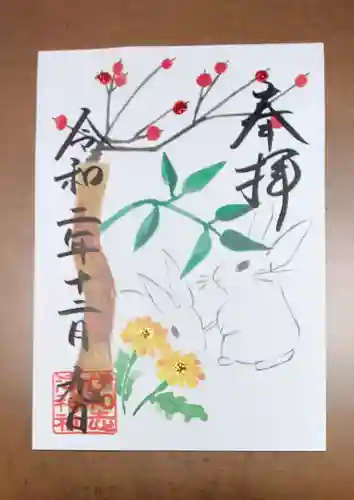 奉拝
令和二年十二月九日